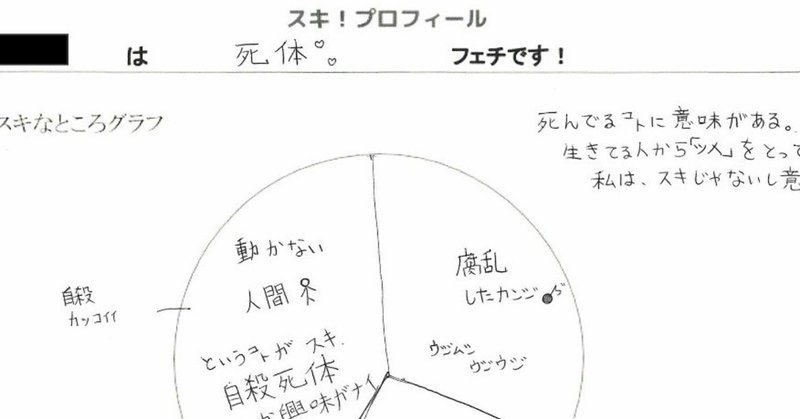 スキ！プロフィール
は 死体♡♡ フェチです！
スキなところグラフ
死んでるコトに意味がある。
生きてる人から「ツメ」をとって
私は、スキじゃないし意
動かない
人間
というコトがスキ.
自殺死体
興味がナイ
自殺
カッコイイ
腐乱
したカンジ
ウジムシ
ウジウジ